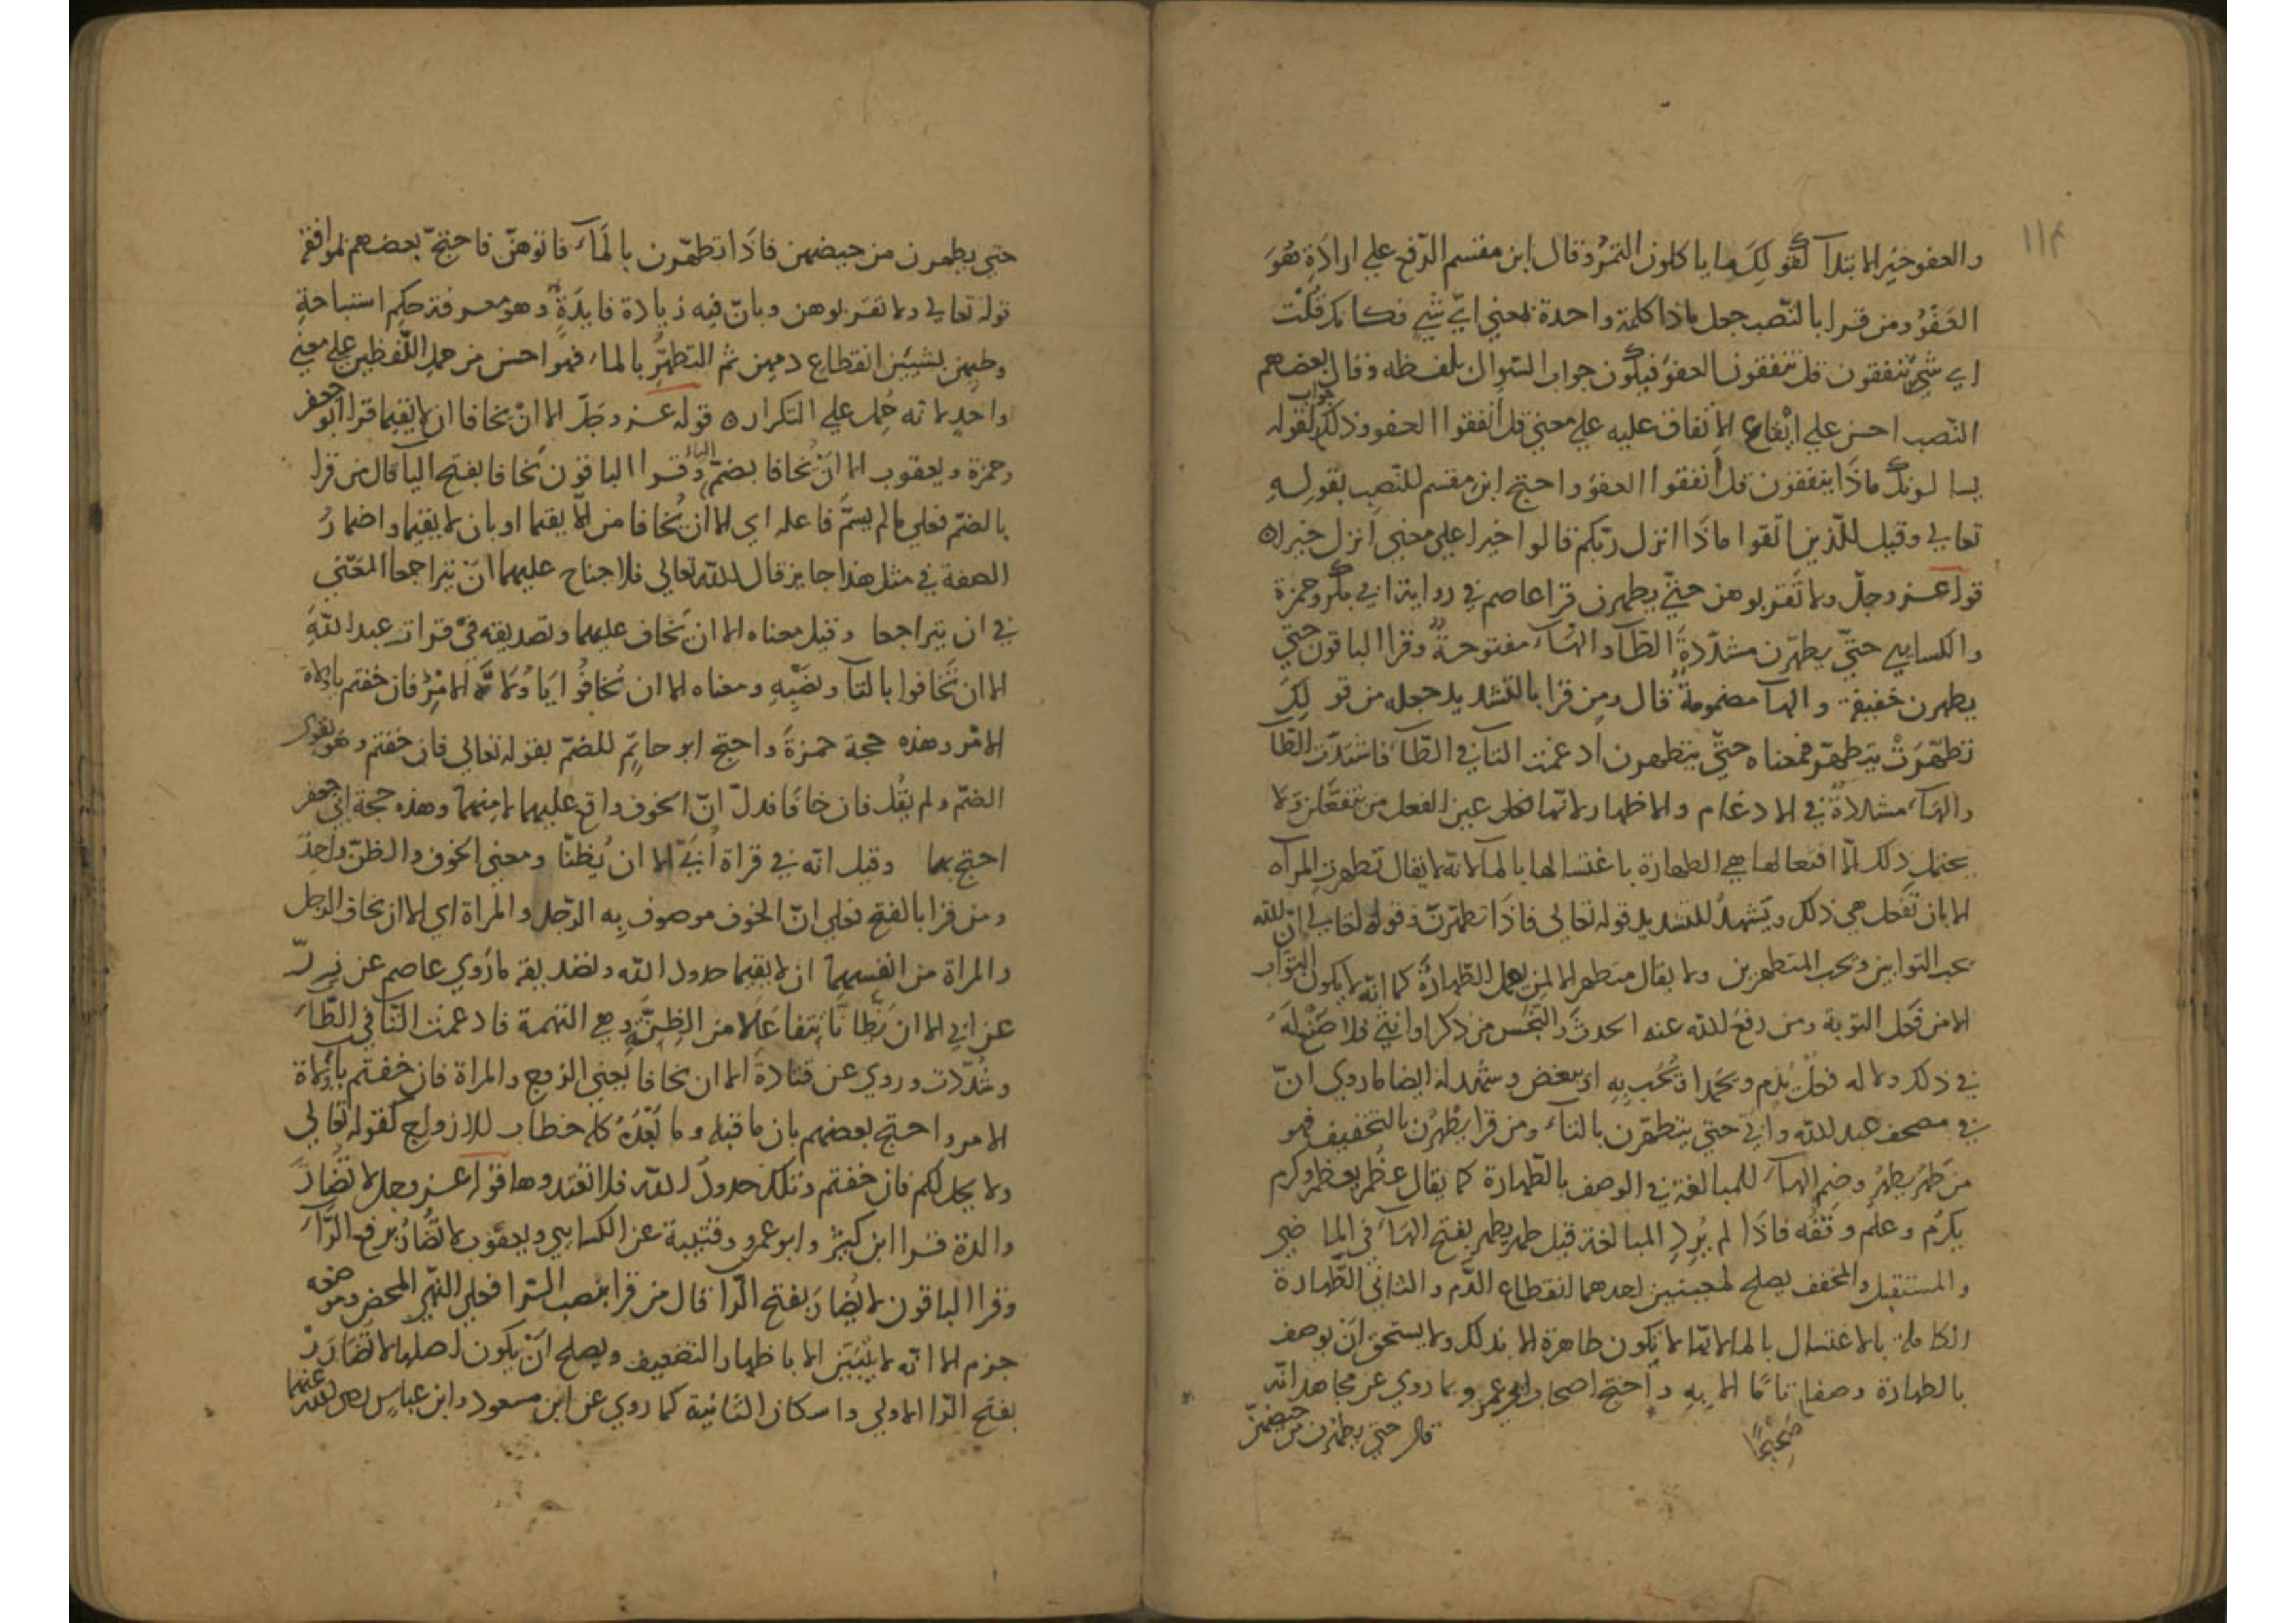 ١١٣
والعفو خبر الابتدآ كقولك ما ياكلون التمرُ وقال ابن مقسم الرّفع علي ارادة هُوَ
العَفْوُ ومن قرا بالنّصب جعل ماذا كلمة واحدة بمعني ايّ شيٍ فكانك قُلْت
اي شيٍ تنفقون قل تنفقون العفوَ فيكون جواب السّوال بلفظه وقال بعضهم
النّصب احسن علي ايْقاع الانفاق عليه علي معني قل أنفقوا العفو وذلك جواب لقوله
يسالونك ماذَا ينفقون قل أنفقوا العفوَ واحتج ابن مقسم للنّصبِ بقولهِ
تعالي وقيل للّذين اتّقوا ماذَا انزل ربّكم قالوا خيرا علي معني انزل خيرا ه
قوله عز وجلّ ولا تَقربوهن حتّي يطهرن قرا عاصم في رواية ابي بكر وحمزة
والكسايي حتّي يطهّرن مشدّدةً الطّآ والهآء مفتوحةً وقرا الباقون حتّي
يطهرن خفيفة والهآ مضمومةً قال ومن قرا بالتّشديد جعله من قولك
تطهّرَتْ يتطهّر فمعناه حتّي يتطهرن أدغمت التا في الطّآ فاشتدّت الطّآ
والهآء مشدّدةٌ في الادغام والاظهار لانها عين الفعل من تفعّلن ولا
يحتمل ذلك الّا افتعالها هي الطهارة باغتسالها بالمآ لانه لا يقال تطهرت المرآه
الا بان تفعل هي ذلك ويَشهدُ للتشديد قوله تعالي فاذَا تطهّرنّ وقوله تعالي انّ الله
يحب التوابين ويحب المتطهرين ولا يقال متطهر الا لمن يعمل الطّهارةَ كما انّه لا يكون التوّاب
الا من فعل التوبة ومن رفع الله عنه الحدثَ والنّجَس من ذكر او انثي فلا صُنْعَ لَهُ
في ذلك ولا له فعلٌ يُذم ويحمد او يُحَب بِهِ او يبغض ويشهد له ايضا ما روي انّ
في مصحف عبد الله وابيّ حتي يتطهّرن بالتاء ومن قرا يطْهُرْن بالتخفيف فهو
من طهُر يطهُر وضم الهآءَ للمبالغة في الوصف بالطّهارة كما يقال عظُم يعظم وكرم
يكرُم وعلم وفقُه فاذَا لم يُردِ المبالغة قيل طهر يطهر بفتح الهآءَ في الماضي
والمستقبل والمخفف يصلح لمعنيين احدهما انقطاع الدّم والثاني الطّهارة
الكاملة بالاغتسال بالما لانّها لا تكون طاهرة الا بذلك ولا يستحق ان يوصف
بالطهارة وصفا تامّا الا بِهِ واحتج اصحاب ابي عمرو بما روي عن مجاهد انّه
صَحِيْحًا
قال حتي يطهرن من حيضهنّ
حتي يطهرن من حيضهن فاذَا تطهّرن بالمَآء فاتوهنّ فاحتجّ بعضهم لموافقة
قوله تعالي ولا تقربوهن وبانّ فيه زيادة فايدَةٍ وهو معرفة حكم استباحةِ
وطيهن بشيئين انقطاع دمهن ثم التطهّرُ بالماء فهو احسن من حمل اللّفظين علي معني
واحدٍ لانه حُمِل علي التكرار ه قوله عز وجَلّ الا انْ يخافا ان لا يقيما قرا ابو جعفر
وحمزة ويعقوب الا انْ يُخافا بضمّ اليآء وقرا الباقون يَخافا بفتح اليآ قال من قرا
بالضمّ فعلي ما لم يسمَّ فاعله اي الا ان يُخافا من الّا يقيما او بان لا يقيما واضمارُ
الصفة في مثل هذا جايز قال الله تعالي فلا جناح عليهما انْ يتراجعا المعْني
في ان يتراجعا وقيل معناه الا ان يخاف عليهما وتصديقه في قراة عبد اللهِ
الا ان تَخافوا بالتآ ومعناه الا ان تَخافُوا فان خفتم يا ولاة
الامْر وهذه حجة حمزةَ واحتج ابو حاتِمٍ للضمّ بقوله تعالي فان خفتم وهو يقوي
الضمّ ولم يقُل فان خافَا فدلّ انّ الخوف واقع عليهما لا مِنهما وهذه حجة ابي جعفر
احتج بها وقيل انّه في قراة أُبَيّ الا ان يُظنّا ومعني الخوف والظنّ واحدٌ
ومن قرا بالفتح فعلي انّ الخوف موصوف بِه الرّجل والمراة اي الا ان يخاف الرجل
والمراة من انفسهما ان لا يقيما حدود الله وتصديقه ما رُوي عاصم عن زِرّ
عن ابي الا ان يَظّانّا يتفاعَلَا من الظِنّةِ وهي التهمة فادغمت التّا في الطّآءَ
وشُدّدت وروي عن قتادةَ الا ان يخافا يعني الزوج والمراة فان خفتم يا ولاة
الامر واحتج بعضهم بان ما قبله وما بَعْدَهُ كله خطاب للازواج كقوله تعالي
ولا يحل لكم فان خفتم وتلك حدودُ الله فلا تعتدوها قوله عز وجل لا تُضارّ
والدة قرا ابن كثيرٌ وابو عمرو وقتيبة عن الكسايي ويعقوب لا تُضارُّ برفع الرّآءَ
وقرا الباقون لا تضارَّ بفتح الرّا قال من قرا بنصب الرّا فعلي النّهي المحض وموضعه
جزم الا انّه لا يتبيّن الا باظهار التضعيف ويصلح انْ يكون اصلها لا تُضَارَرْ
بفتح الرّا الاولي واسكان الثانية كما روي عن ابن مسعود وابن عباسٍ رضي الله عنهما